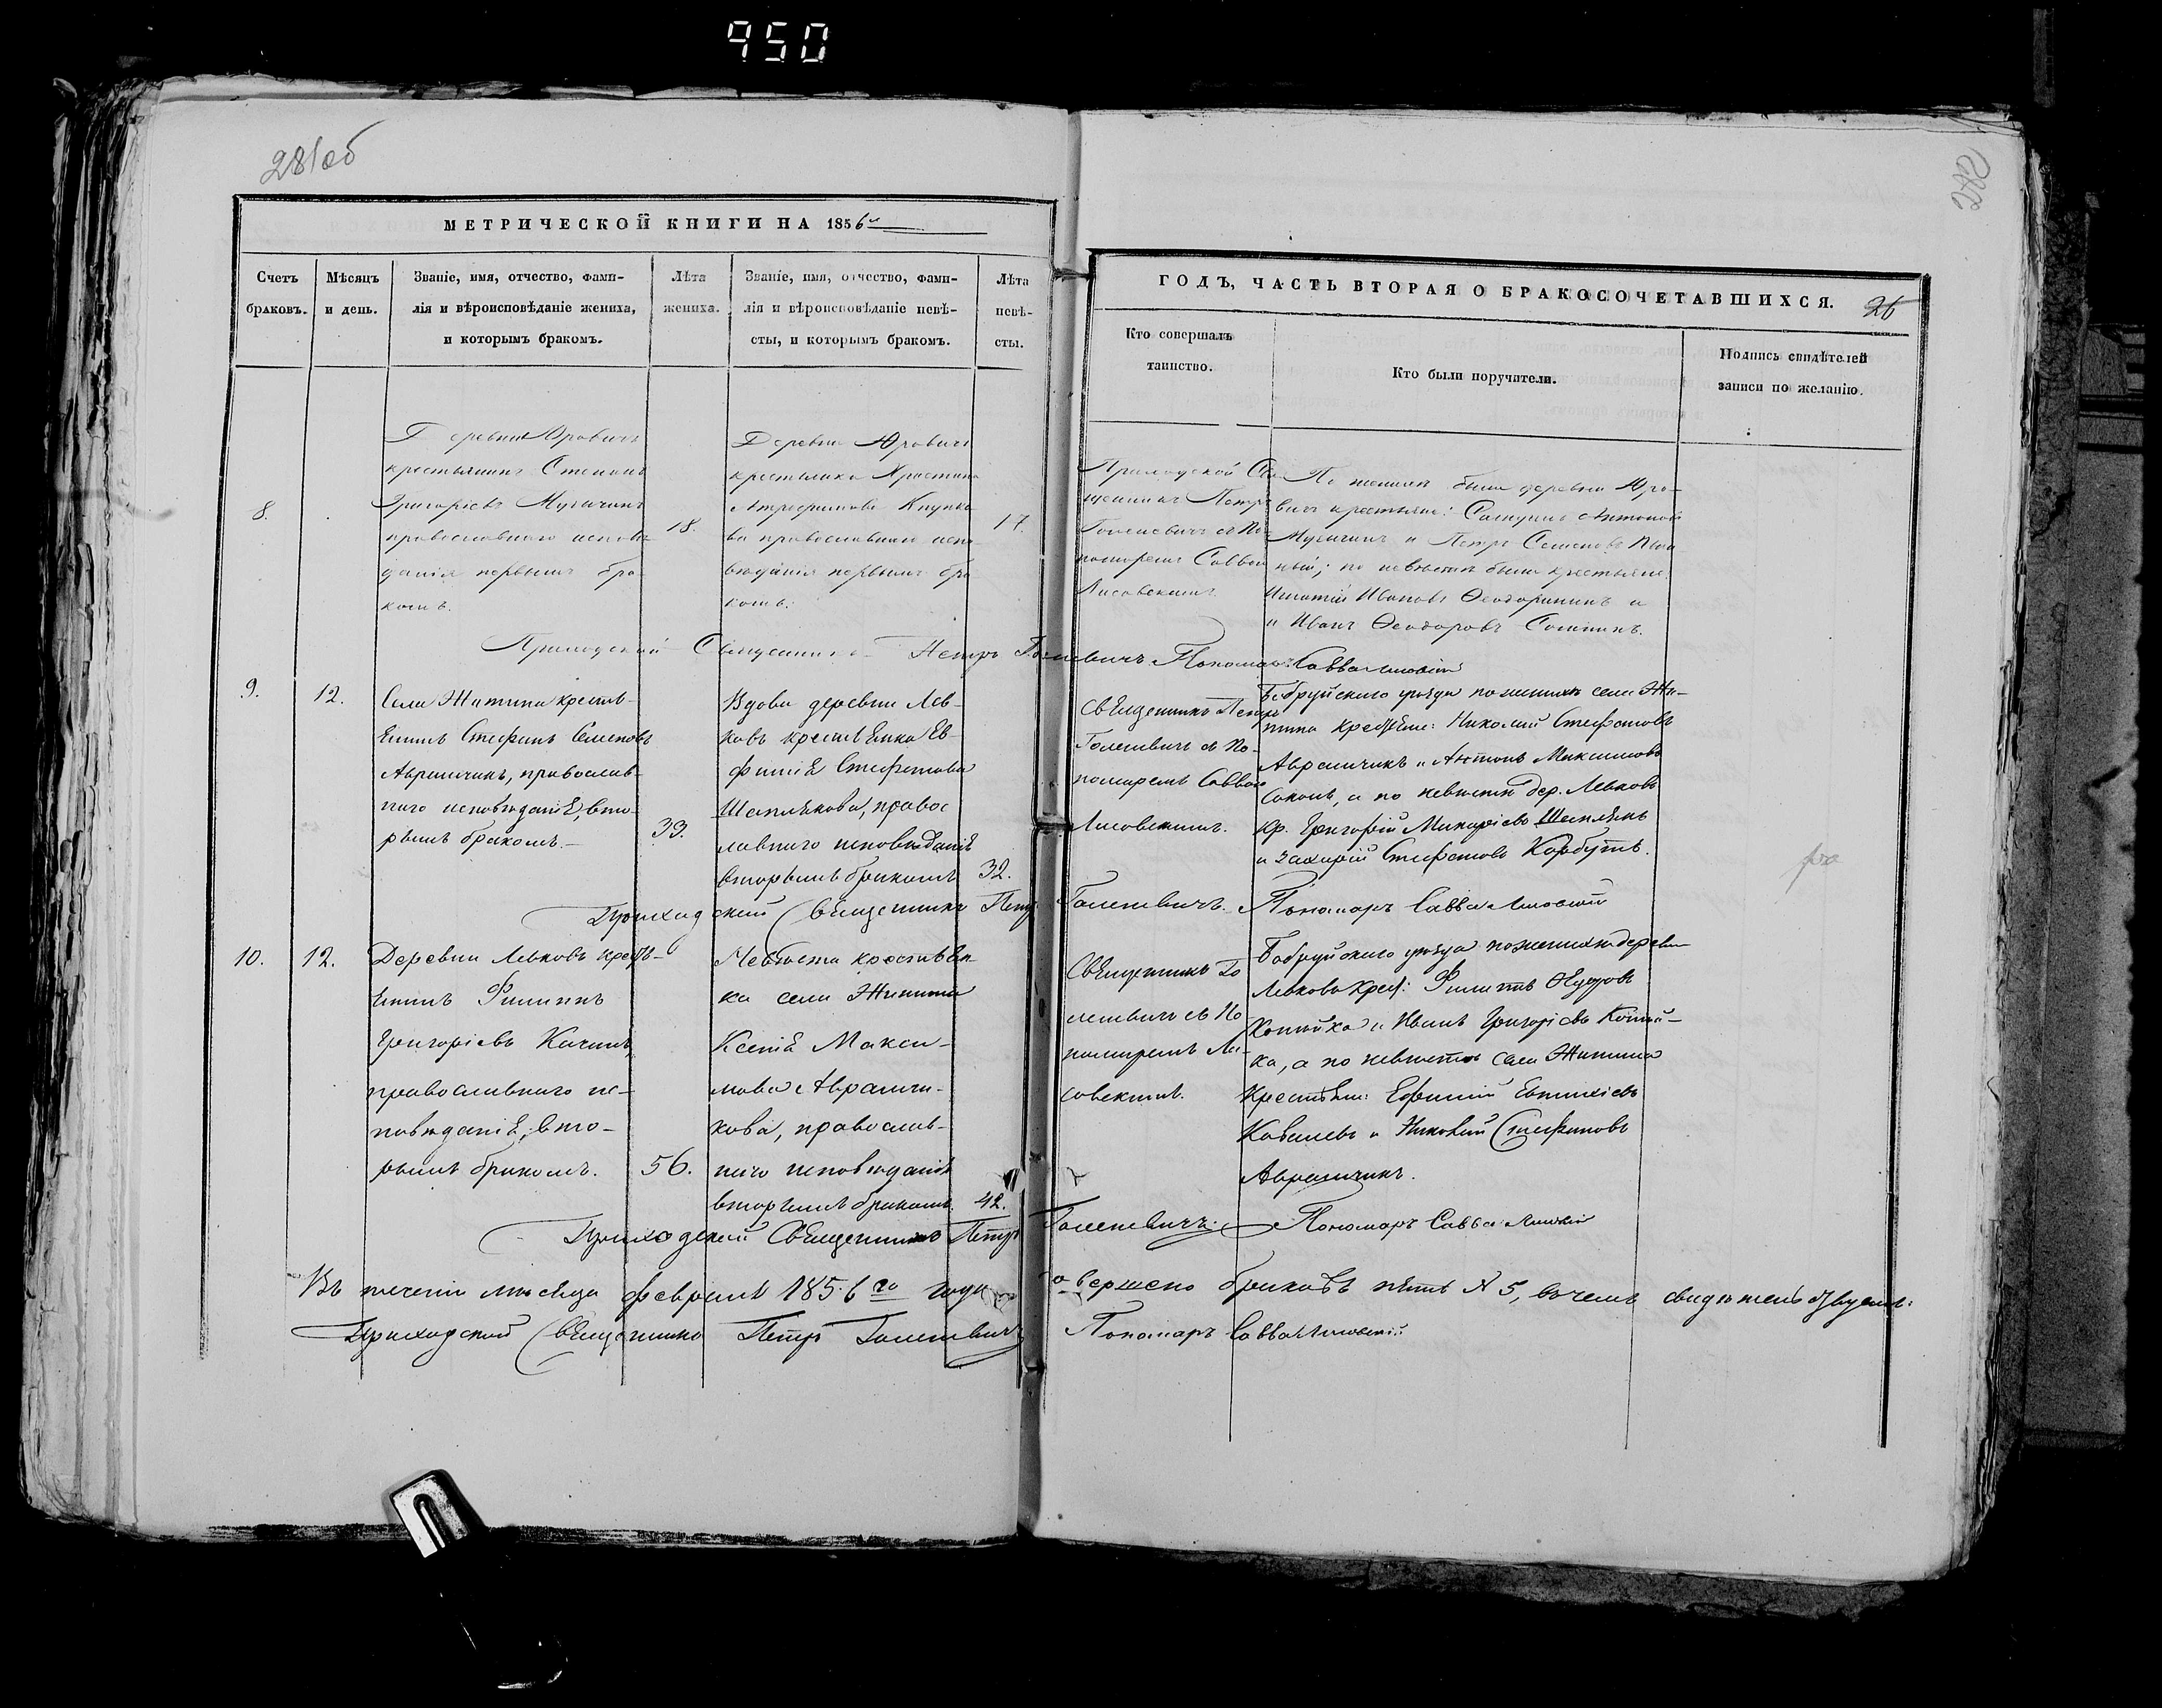 950
281об
МЕТРИЧЕСКОЙ КНИГИ НА 1856й
Счетъ браковъ.
Мѣсяцъ и день.
Званіе, имя, отчество, фами-
лія и вѣроисповѣданіе жениха,
и которымъ бракомъ.
Лѣта жениха.
Званіе, имя, отчество, фами-
лія и вѣроисповѣданіе невѣ-
сты, и которымъ бракомъ.
Лѣта невѣ-
сты.
ГОДЪ, ЧАСТЬ ВТОРАЯ О БРАКОСОЧЕТАВШИХСЯ.
26
Кто совершалъ
таинство.
Кто были поручители.
Подпись свидѣтелей
записи по желанію.
8.
Деревни Юровичъ
крестьянинъ Степанъ
Григоріевъ
православнаго исповѣ
данія первымъ бра
комъ.
18.
Деревни Юровичъ
крестьянка Христина
православнаго испо
вѣданія первымъ бра
комъ.
17.
Приходской Свя
щенникъ Петръ
Голеневичъ съ По
номаремъ Саввою
Лисовскимъ.
По женихѣ были деревни Юро-
вичъ крестьяне: Антоновъ
и Петръ Семеновъ
по невѣстѣ были крестьяне
Игнатій Ивановъ и
и Иванъ Ѳеодоровъ
Приходской Священникъ Петръ Голеневичъ. Пономаръ Савва Лисовскій
9.
12.
Села Житина кресть-
янинъ Стефанъ Семеновъ
Аврамчикъ, православ-
наго исповѣданія, вто-
рымъ бракомъ.
39.
Вдова деревни Лев-
ковъ крестьянка Ев-
фимія Стефанова
Шаплякова, правос
лавнаго исповѣданія
вторымъ бракомъ
32.
Священникъ Петръ
Голеневичъ съ По-
номаремъ Саввою
Лисовскимъ.
Бобруйскаго уѣзда по женихѣ села Жи-
тина крестьяне: Николай Стефановъ
Аврамчикъ и Антонъ Максимовъ
а по невѣстѣ дер. Левковъ
кр. Григорій Макаріевъ Шаплякъ
и Захарій Стефановъ Корбутъ.
Приходской Священникъ Петръ Голеневичъ. Пономаръ Савва Лисовскій
10.
12.
Деревни Левковъ кресть-
янинъ Филиппъ
Григорьевъ
православнаго ис-
повѣданія, вто-
рымъ бракомъ.
56.
Невѣста крестьян-
ка села Житина
Ксенія Макси-
мова Аврамчи-
кова, православ-
наго исповѣданія
вторымъ бракомъ.
42.
Священникъ Го
леневичъ съ По
номаремъ Ли-
совскимъ.
Бобруйскаго уѣзда по женихѣ деревни
Левковъ крест: Филиппъ
и Иванъ Григорьевъ
ка, а по невѣстѣ села Житина
крестьяне: Ефимій Евтихіевъ
Ковалевъ и Николай Стефановъ
Аврамчикъ.
Приходской Священникъ Петръ Голеневичъ. Пономаръ Савва Лисовскій
Въ теченіи мѣсяца февраля 1856го года совершено браковъ пять № 5, въ чемъ свидѣтельствуемъ:
Приходской Священникъ Петръ Голеневичъ Пономаръ Савва Лисовскій